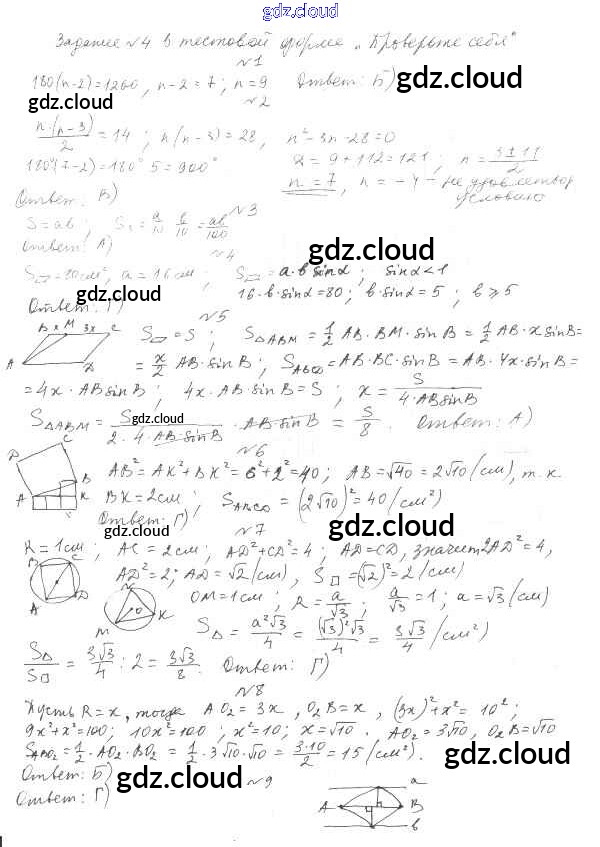 gdz.cloud
Задание №4 в тестовой форме „Проверьте себя"
№1
180(n-2)=1260, n-2=7; n=9 Ответ: Б)
gdz.cloud
gdz.cloud
№2
n(n-3)/2 = 14; n(n-3)=28, n²-3n-28=0
180°(7-2)=180°·5=900° D=9+112=121, n=(3±11)/2
gdz.cloud
n=7, n=-4 - не удовлетвор
условию
Ответ: В)
№3
S=ab; S₁=a/10 · b/10 = ab/100
Ответ: А)
№4
gdz.cloud
S▱=80см², a=16см; S▱=a·b sinα; sinα<1
gdz.cloud
16·b·sinα=80; b·sinα=5; b≥5
Ответ: Г)
№5
B x M 3x C
A D
S▱=S; S△ABM=1/2 AB·BM·sinB=1/2 AB·x sinB=
=x/2 AB·sinB; SABCD=AB·BC·sinB=AB·4x·sinB=
=4x·ABsinB; 4x·ABsinB=S; x=S/(4·ABsinB)
S△ABM=S/(2·4·AB·sinB)·AB·sinB=S/8. Ответ: А)
gdz.cloud
№6
D C
A B K
AB²=AK²+BK²=6²+2²=40; AB=√40=2√10(см), т.к.
BK=2см; SABCD=(2√10)²=40(см²)
Ответ: Г)
gdz.cloud
№7
gdz.cloud
R=1см; AC=2см; AD²+CD²=4; AD=CD, значит 2AD²=4,
B C
A D
AD²=2; AD=√2(см), S□=(√2)²=2(см²)
N
O
M K
OM=1см; R=a/√3; a/√3=1; a=√3(см)
S△=a²√3/4=(√3)²√3/4=3√3/4(см²)
S△/S□=3√3/4:2=3√3/8. Ответ: Г)
gdz.cloud
№8
Пусть R=x, тогда AO₂=3x, O₂B=x, (3x)²+x²=10²;
9x²+x²=100; 10x²=100; x²=10; x=√10. AO₂=3√10, O₂B=√10
SABO₂=1/2·AO₂·BO₂=1/2·3√10·√10=3·10/2=15(см²).
gdz.cloud
Ответ: Б)
№9
gdz.cloud
Ответ: Г)
a
A B
b
gdz.cloud